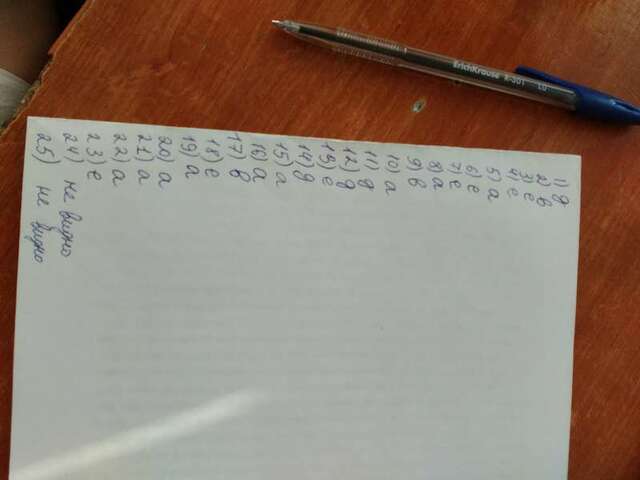 1) g
2) в
3) е
4) е
5) а
6) е
7) е
8) а
9) в
10) а
11) g
12) g
13) е
14) g
15) а
16) а
17) в
18) е
19) а
20) а
21) а
22) а
23) е
24) не видно
25) не видно
ErichKrause R-301 1.0